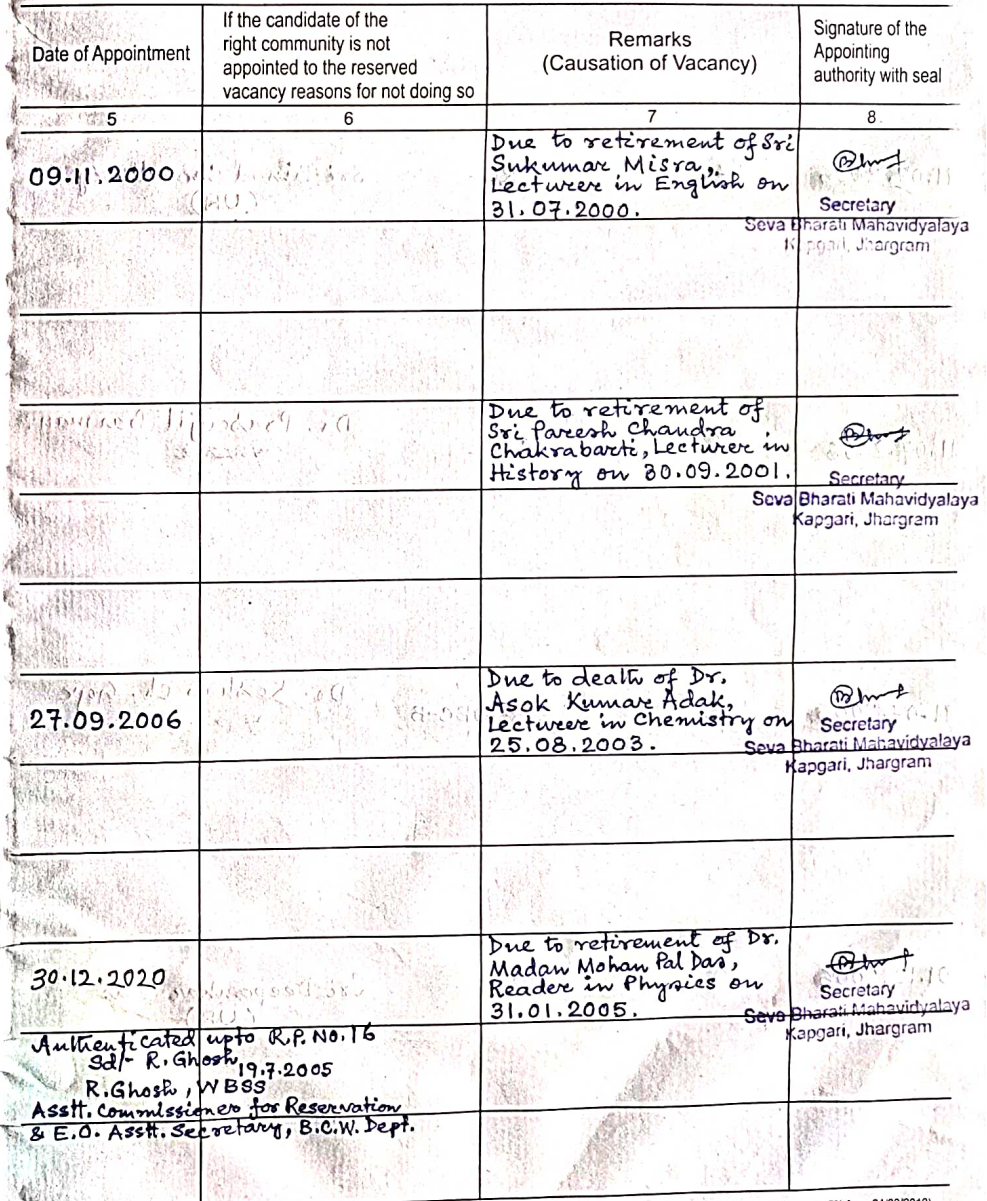 Date of Appointment
If the candidate of the
right community is not
appointed to the reserved
vacancy reasons for not doing so
Remarks
(Causation of Vacancy)
Signature of the
Appointing
authority with seal
5
6
7
8
09.11.2000
Due to retirement of Sri
Sukumar Misra,
Lecturer in English on
31.07.2000.
Secretary
Seva Bharati Mahavidyalaya
Kapgari, Jhargram
Due to retirement of
Sri Paresh Chandra
Chakrabarti, Lecturer in
History on 30.09.2001.
Secretary
Seva Bharati Mahavidyalaya
Kapgari, Jhargram
27.09.2006
Due to death of Dr.
Asok Kumar Adak,
Lecturer in Chemistry on
25.08.2003.
Secretary
Seva Bharati Mahavidyalaya
Kapgari, Jhargram
30.12.2020
Due to retirement of Dr.
Madan Mohan Pal Das,
Reader in Physics on
31.01.2005.
Secretary
Seva Bharati Mahavidyalaya
Kapgari, Jhargram
Authenticated upto R.P. No. 16
Sd/- R. Ghosh
19.7.2005
R. Ghosh, WBSS
Asstt. Commissioner for Reservation
& E.O. Asstt. Secretary, B.C.W. Dept.